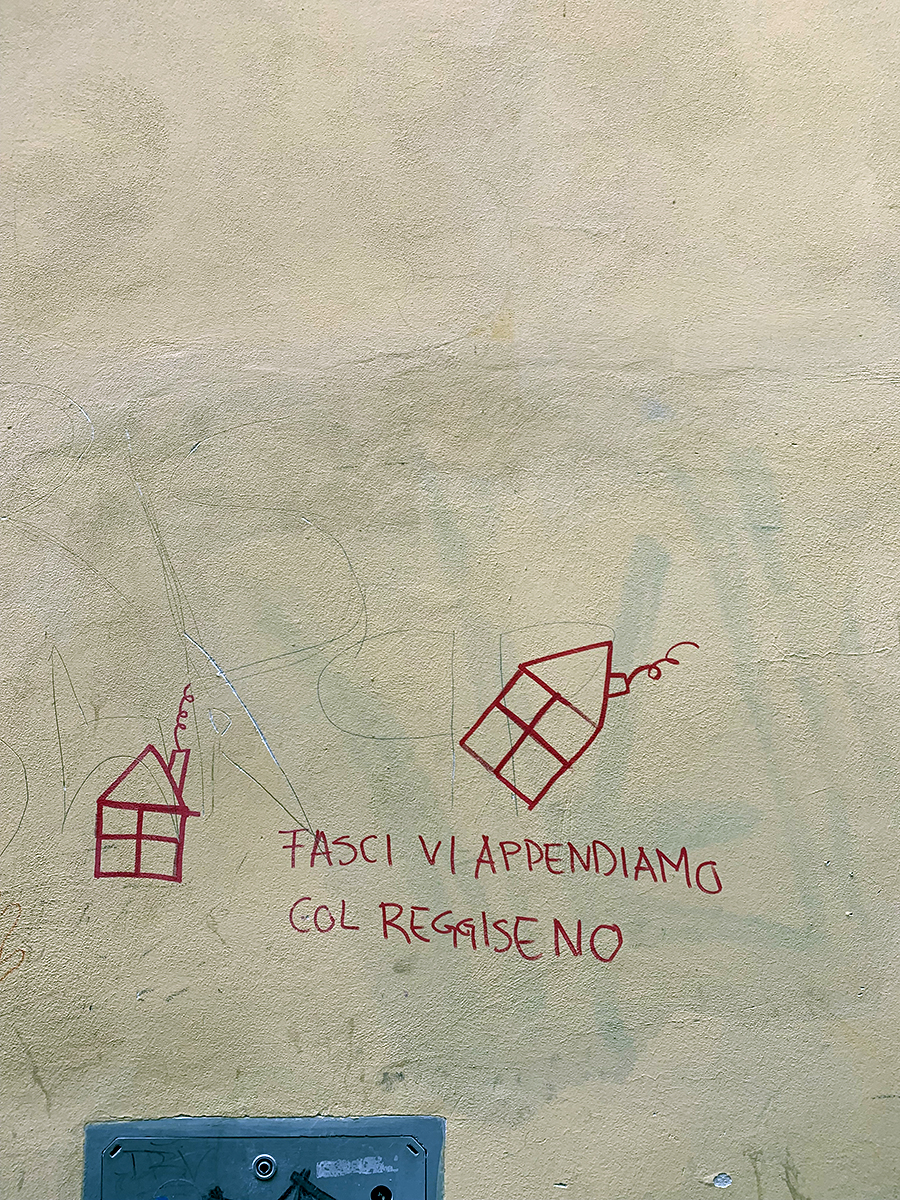 FASCI VI APPENDIAMO
COL REGGISENO